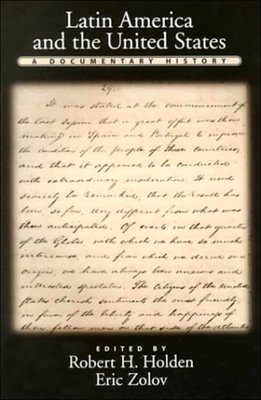 Latin America
and the United States
A DOCUMENTARY HISTORY
It was stated at the commencement of
the last session that a great effort was then
making in Spain and Portugal to improve
the condition of the people of those countries;
and that it appeared to be conducted
with extraordinary moderation. It need
scarcely be remarked, that the result has
been, so far, very different from what was
then anticipated. Of events in that quarter
of the Globe, with which we have so much
intercourse, and from which we derive our
origin, we have always been anxious and
interested spectators. The Citizens of the United
States cherish sentiments the most friendly,
in favor of the liberty and happiness of
their fellow men on that side of the Atlantic
EDITED BY
Robert H. Holden
Eric Zolov